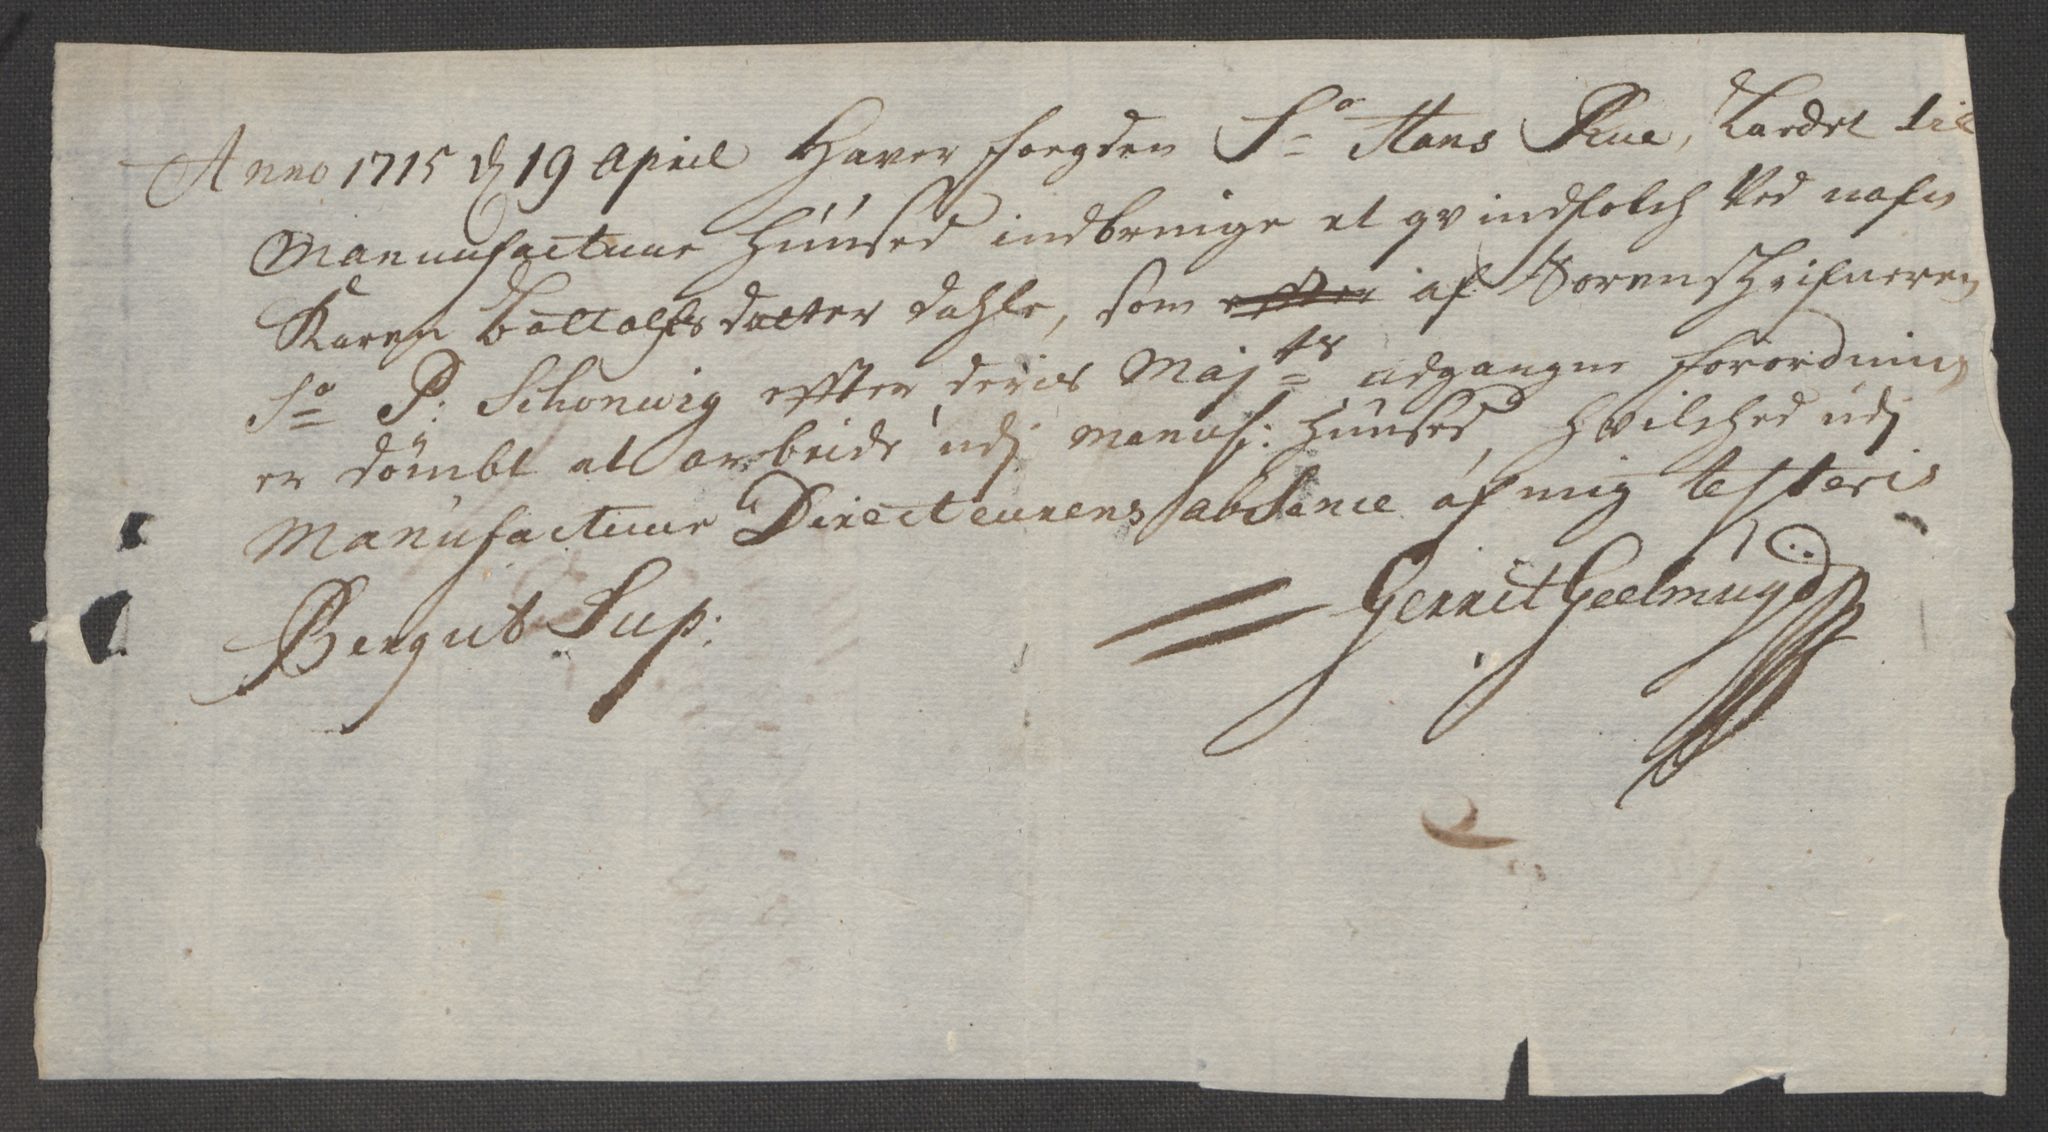 Anno 1715 d 19 April Haver foegden Sr Hans Rue, Ladet til
Manunfactuur Huused indbringe et qvindfolch Ved nafn
Karen Bottolfsdatter Dahle, som effter af Sorenschrifueren
Sr P: Schonwig effter deris Majts udgangne forordning
er dømbt at arbeide udj Manuf: Huused, hvilched udj
Manufactuur Directeurens absence af mig testeris
Bergut Sup:
Gerrit Geelmuyd